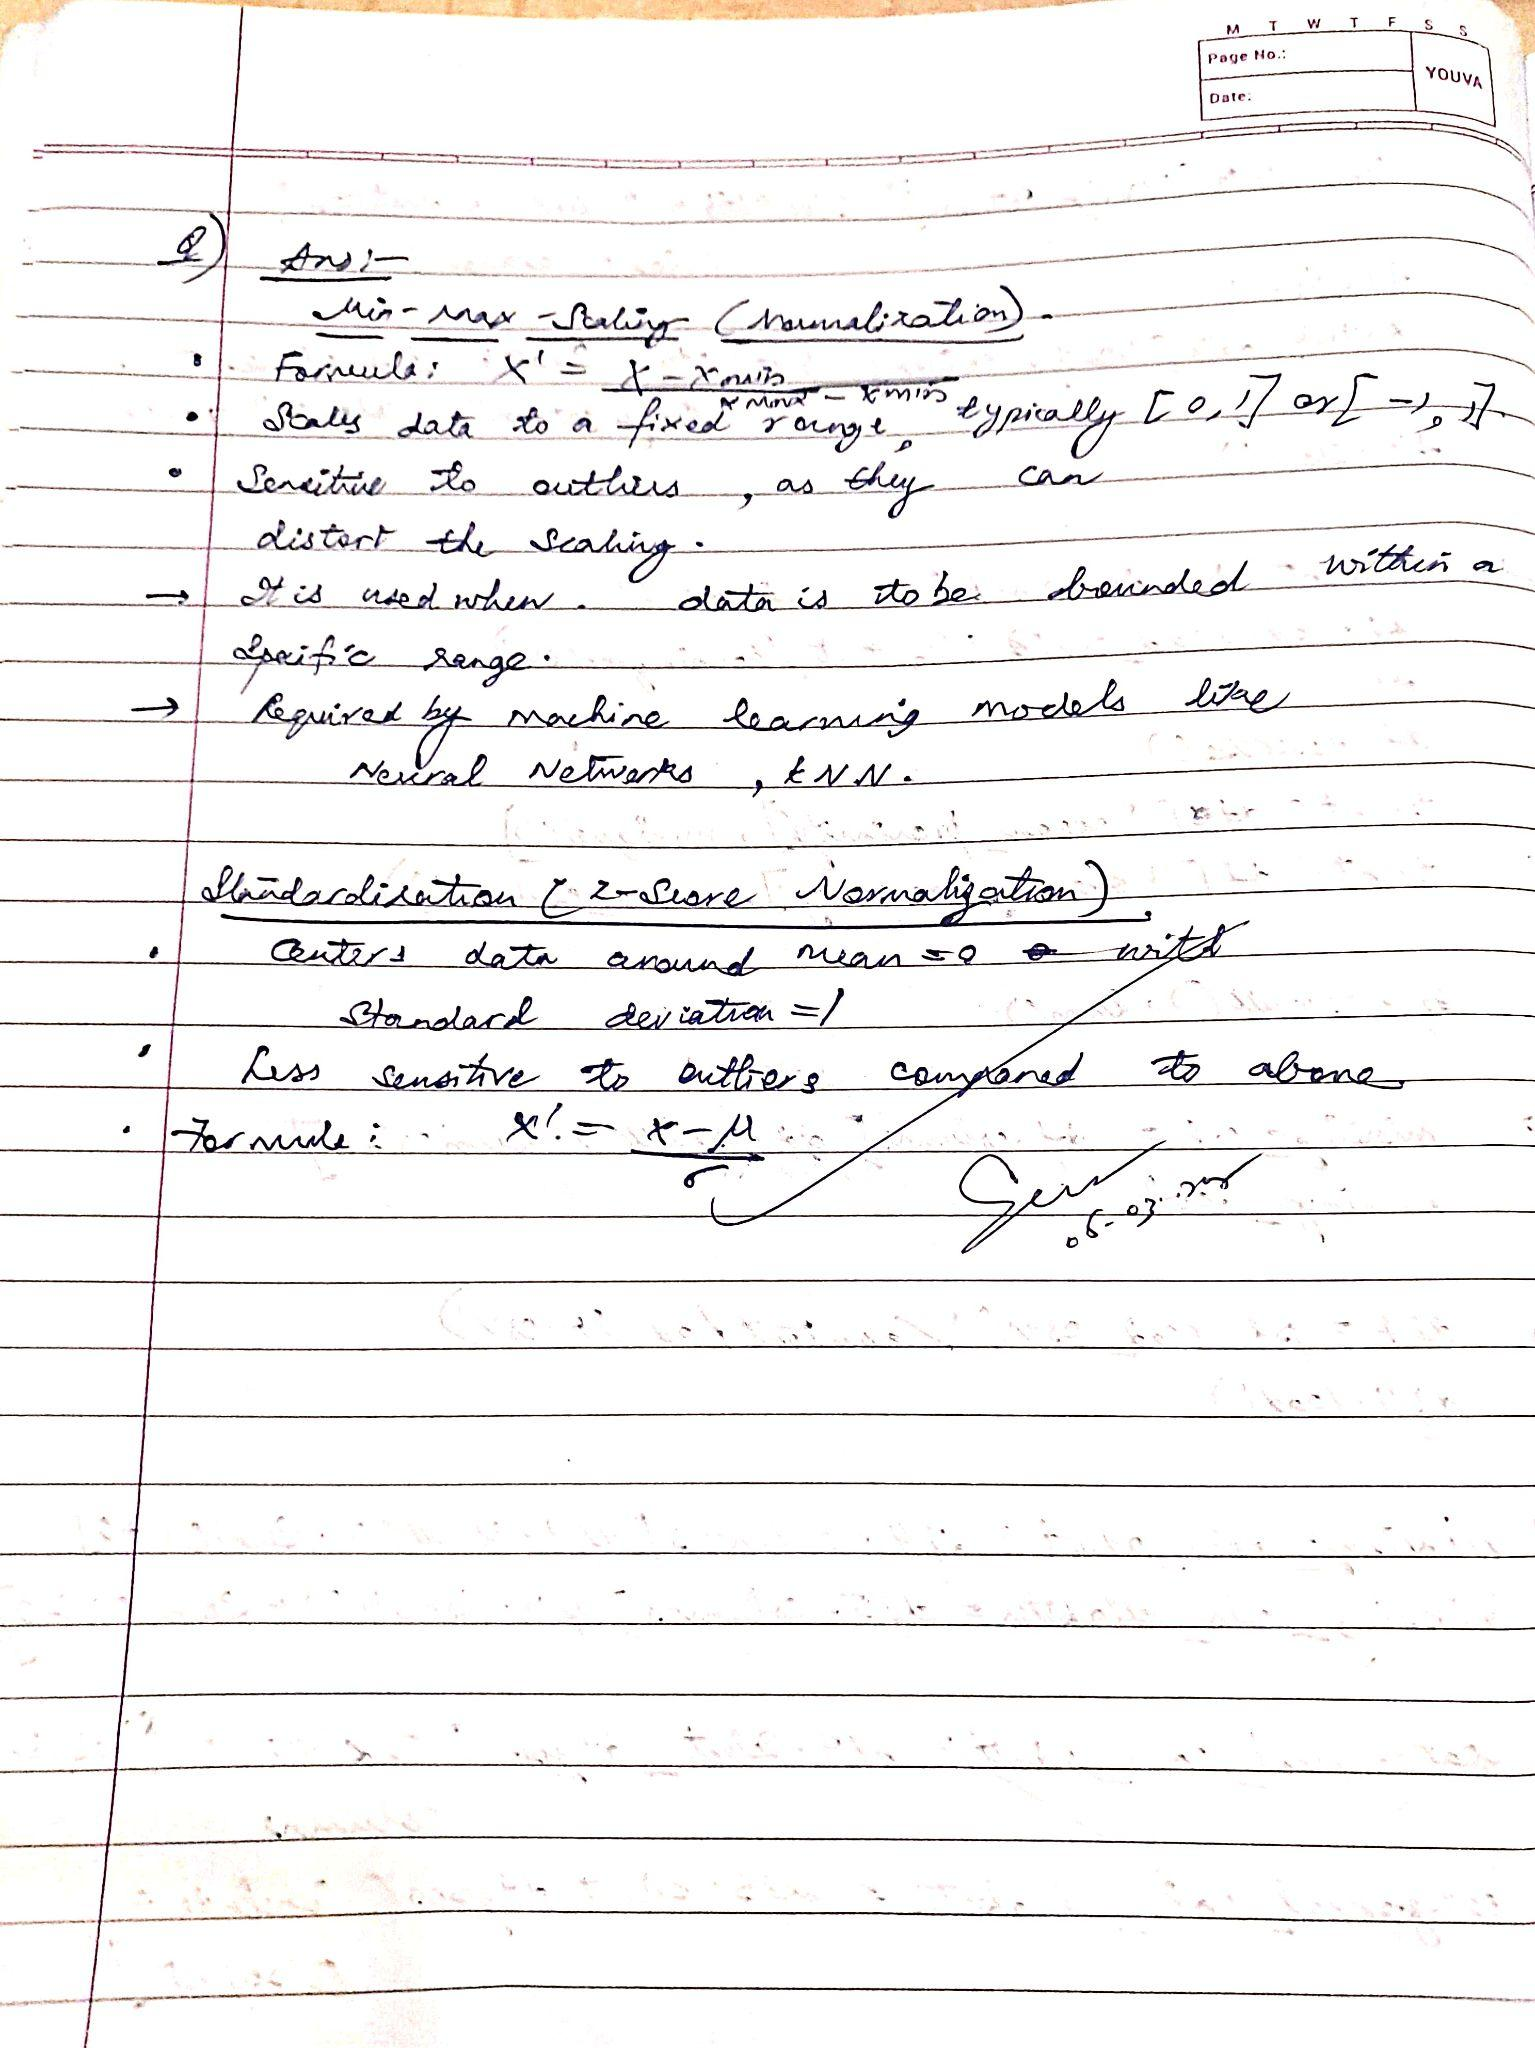 M T W T F S S
Page No.:
YOUVA
Date:
Q) Ans:-
Min-Max-Scaling (Normalization).
• Formula: X' = X - Xmin / Xmax - Xmin
• Scales data to a fixed range, typically [0, 1] or [-1, 1].
• Sensitive to outliers, as they can
distort the scaling.
→ It is used when. data is to be bounded within a
specific range.
→ Required by machine learning models like
Neural Networks, kNN.
Standardization (Z-Score Normalization)
• Centers data around mean = 0 with
Standard deviation = 1
• Less sensitive to outliers compared to above
• Formula: x' = x - μ / σ